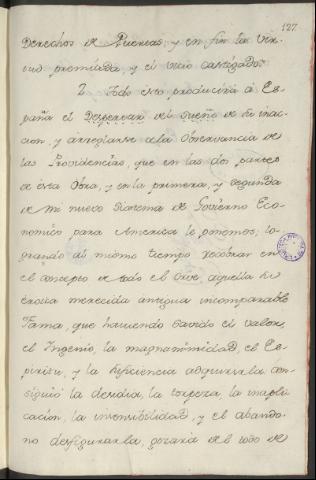 127
Derechos de Puertas; y en fin la vir-
tud premiada, y el vicio castigado.
Y todo esto producirá á Es-
paña el Despertar del sueño de su inac-
cion, y arreglarse a la Observancia de
las Providencias, que en las dos partes
de esta Obra, y en la primera, y segunda
de mi nuevo Sistema de Govierno Eco-
nomico para America le ponemos; lo-
grando al mismo tiempo recobrar en
el concepto de todo el Orve aquella he-
roica merecida antigua incomparable
Fama, que haviendo savido el valor,
el Ingenio, la magnanimidad, el Es-
piritu, y la suficiencia adquirirla con-
siguió la desidia, la torpeza, la inapli-
cacion, la insensibilidad, y el abando-
no desfigurarla, gozará de el todo de